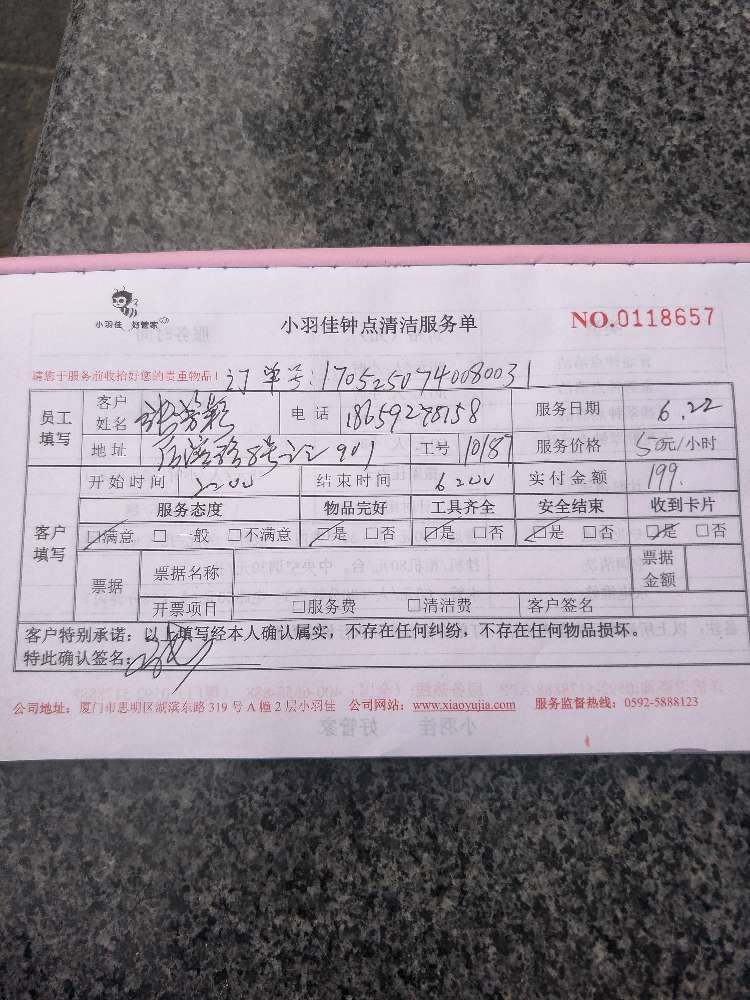 小羽佳 好管家
小羽佳钟点清洁服务单
NO.0118657
请您于服务前收拾好您的贵重物品!
订单号:1705250740080031
员工填写 客户姓名 电话 18659278158 服务日期 6.22
地址 901 工号 10187 服务价格 50元/小时
客户填写 开始时间 2200 结束时间 6200 实付金额 199.
服务态度 物品完好 工具齐全 安全结束 收到卡片
☑满意 □一般 □不满意 ☑是 □否 ☑是 □否 ☑是 □否 ☑是 □否
票据 票据名称 票据金额
开票项目 □服务费 □清洁费 客户签名
客户特别承诺:以上填写经本人确认属实,不存在任何纠纷,不存在任何物品损坏。
特此确认签名:
公司地址:厦门市思明区湖滨东路319号A幢2层小羽佳 公司网站:www.xiaoyujia.com 服务监督热线:0592-5888123